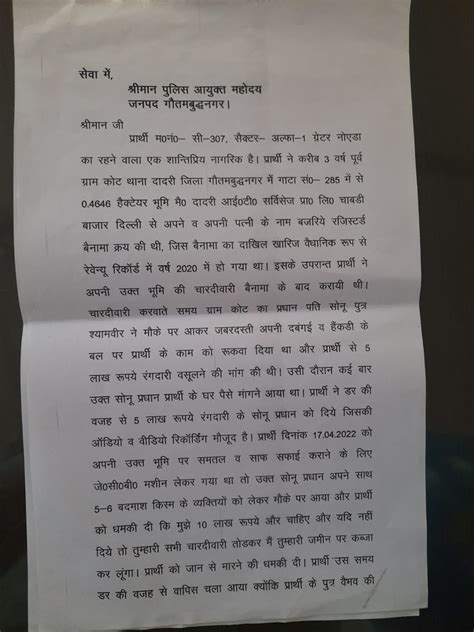 सेवा में,
श्रीमान पुलिस आयुक्त महोदय
जनपद गौतमबुद्धनगर।
श्रीमान जी
प्रार्थी म0नं0– सी–307, सैक्टर– अल्फा–1 ग्रेटर नोएडा
का रहने वाला एक शान्तिप्रिय नागरिक है। प्रार्थी ने करीब 3 वर्ष पूर्व
ग्राम कोट थाना दादरी जिला गौतमबुद्धनगर में गाटा सं0– 285 में से
0.4646 हैक्टेयर भूमि मै0 दादरी आई0टी0 सर्विसेज प्रा0 लि0 चाबडी
बाजार दिल्ली से अपने व अपनी पत्नी के नाम बजरिये रजिस्टर्ड
बैनामा क्रय की थी, जिस बैनामा का दाखिल खारिज वैधानिक रूप से
रेवेन्यू रिकॉर्ड में वर्ष 2020 में हो गया था। इसके उपरान्त प्रार्थी ने
अपनी उक्त भूमि की चारदीवारी बैनामा के बाद करायी थी।
चारदीवारी करवाते समय ग्राम कोट का प्रधान पति सोनू पुत्र
श्यामवीर ने मौके पर आकर जबरदस्ती अपनी दबंगई व हैंकडी के
बल पर प्रार्थी के काम को रूकवा दिया था और प्रार्थी से 5
लाख रूपये रंगदारी वसूलने की मांग की थी। उसी दौरान कई बार
उक्त सोनू प्रधान प्रार्थी के घर पैसे मांगने आया था। प्रार्थी ने डर की
वजह से 5 लाख रूपये रंगदारी के सोनू प्रधान को दिये जिसकी
ऑडियो व वीडियो रिकॉर्डिंग मौजूद है। प्रार्थी दिनांक 17.04.2022 को
अपनी उक्त भूमि पर समतल व साफ सफाई कराने के लिए
जे0सी0बी0 मशीन लेकर गया था तो उक्त सोनू प्रधान अपने साथ
5–6 बदमाश किस्म के व्यक्तियों को लेकर मौके पर आया और प्रार्थी
को धमकी दी कि मुझे 10 लाख रूपये और चाहिए और यदि नहीं
दिये तो तुम्हारी सभी चारदीवारी तोडकर मैं तुम्हारी जमीन पर कब्जा
कर लूंगा। प्रार्थी को जान से मारने की धमकी दी। प्रार्थी उस समय
डर की वजह से वापिस चला आया क्योंकि प्रार्थी के पुत्र वैभव की